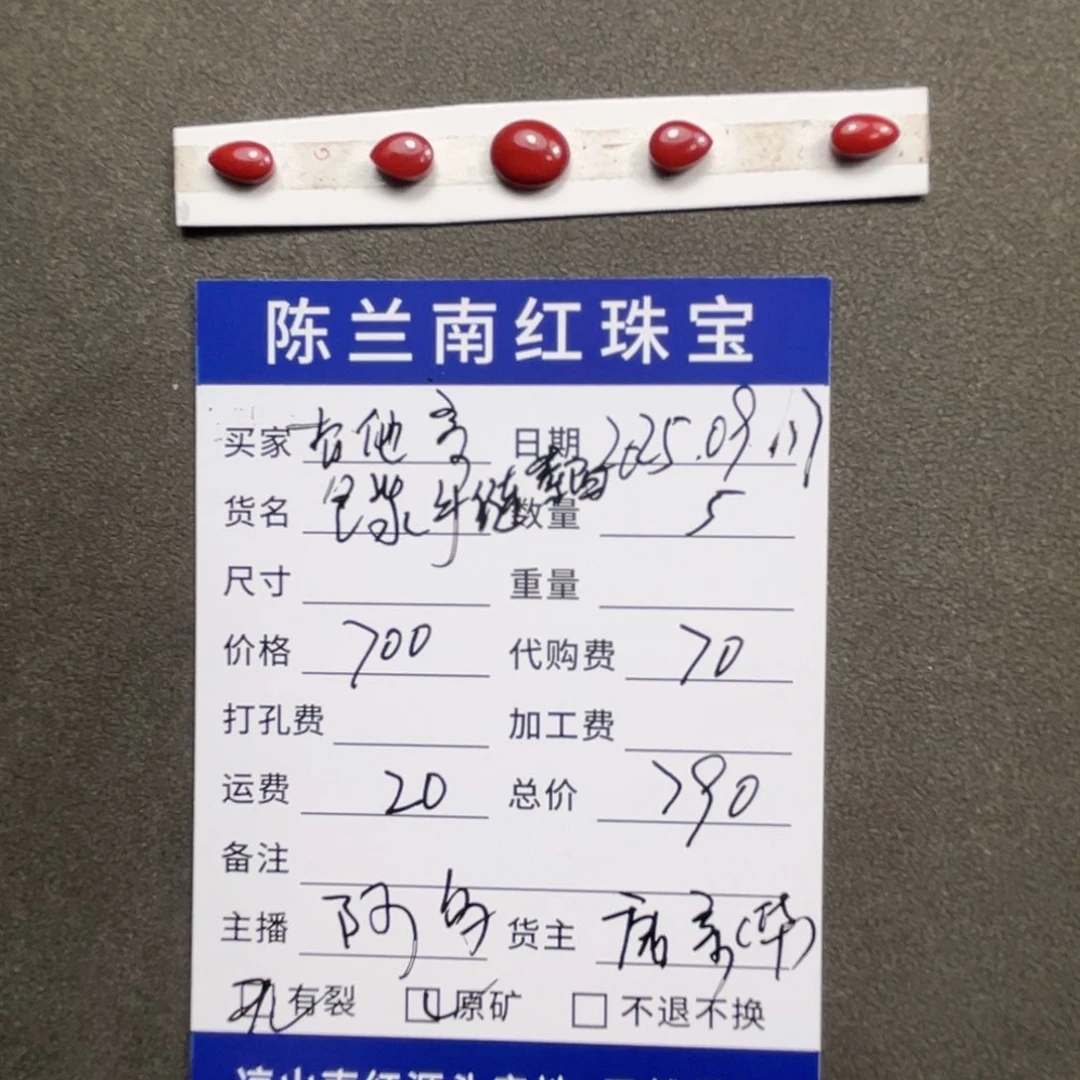 陈兰南红珠宝
买家 吉他 日期 2025.09.17
货名 手链 数量 5
尺寸 重量
价格 700 代购费 70
打孔费 加工费
运费 20 总价 790
备注
主播 阿 货主
有裂 原矿 不退不换